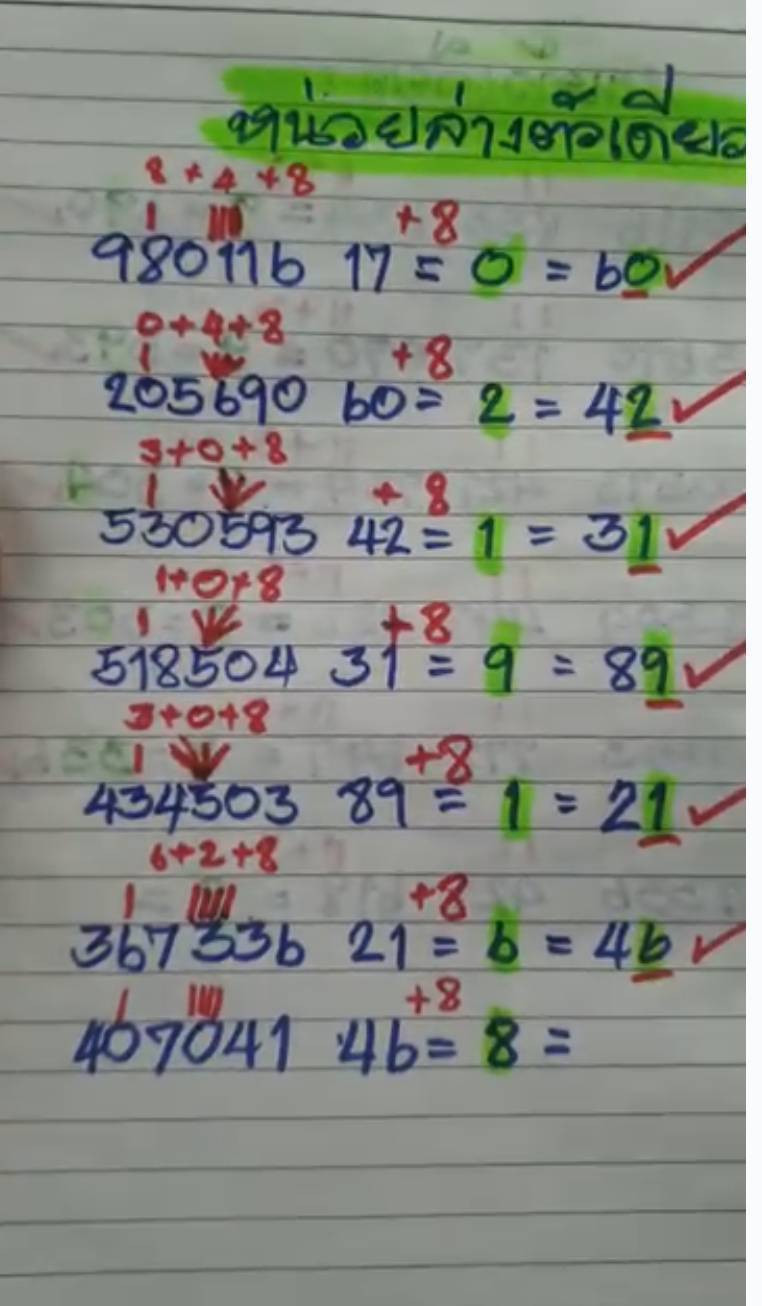 หน่วยล่างตัวเดียว
8 + 4 + 8
+8
980116 17 = 0 = 60
0+4+8
+8
205690 60 = 2 = 42
3+0+8
+ 8
530593 42 = 1 = 31
1+0+8
+8
518504 31 = 9 = 89
3+0+8
+8
434503 89 = 1 = 21
6+2+8
+8
367336 21 = 6 = 46
+8
407041 46 = 8 =